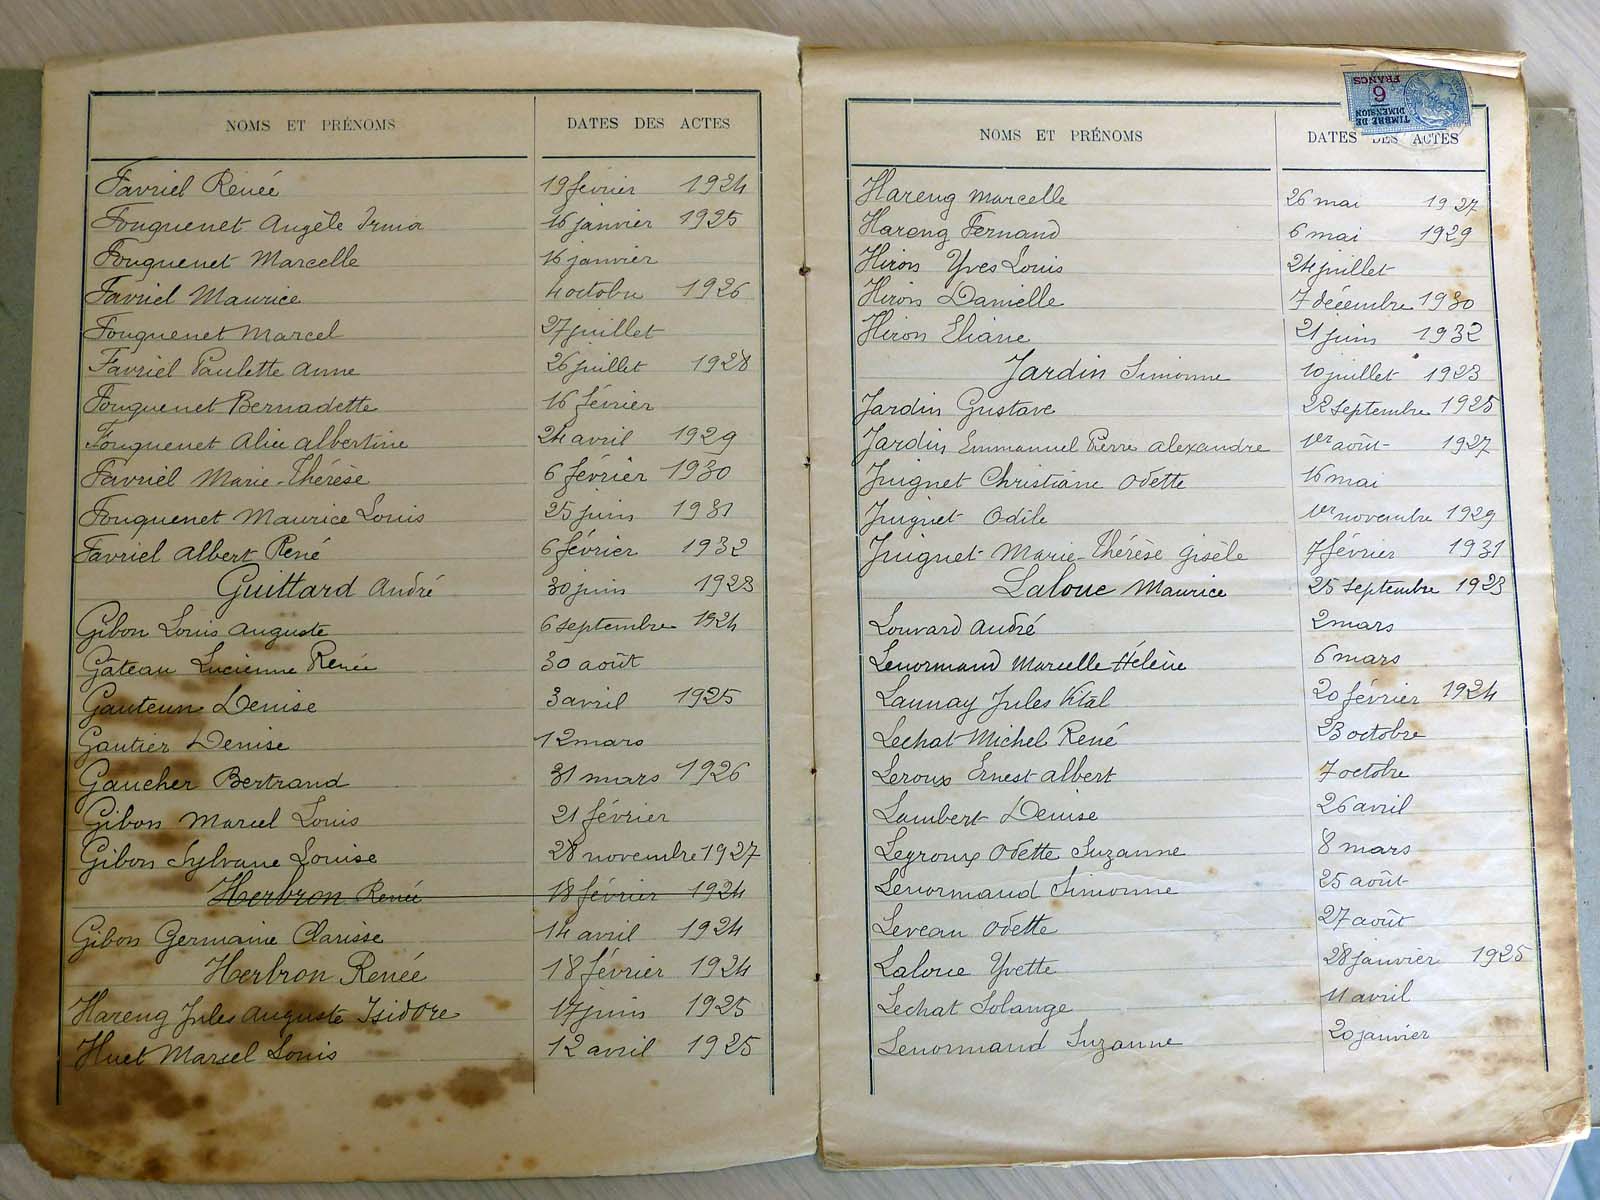 NOMS ET PRÉNOMS DATES DES ACTES
Favriel Renée 19 février 1924
Fouquenet Angèle Irma 16 janvier 1925
Fouquenet Marcelle 16 janvier
Favriel Maurice 4 octobre 1926
Fouquenet Marcel 27 juillet
Favriel Paulette Anne 26 juillet 1928
Fouquenet Bernadette 16 février
Fouquenet Alice Albertine 24 avril 1929
Favriel Marie-Thérèse 6 février 1930
Fouquenet Maurice Louis 25 juin 1931
Favriel Albert René 6 février 1932
Guittard André 30 juin 1923
Gibon Louis Auguste 6 septembre 1924
Gâteau Lucienne Renée 30 août
Gauteun Denise 3 avril 1925
Gautier Denise 12 mars
Gaucher Bertrand 31 mars 1926
Gibon Marcel Louis 21 février
Gibon Sylvane Louise 28 novembre 1927
Herbron Renée 18 février 1924
Gibon Germaine Clarisse 14 avril 1924
Herbron Renée 18 février 1924
Hareng Jules Auguste Isidore 17 juin 1925
Huet Marcel Louis 12 avril 1925
TIMBRE DE DIMENSION
6 FRANCS
NOMS ET PRÉNOMS DATES DES ACTES
Hareng Marcelle 26 mai 1927
Hareng Fernand 6 mai 1929
Hiron Yves Louis 24 juillet
Hiron Danielle 7 décembre 1930
Hiron Eliane 21 juin 1932
Jardin Simonne 10 juillet 1923
Jardin Gustave 22 septembre 1925
Jardin Emmanuel Pierre Alexandre 1er août 1927
Juignet Christiane Odette 16 mai
Juignet Odile 1er novembre 1929
Juignet Marie-Thérèse Gisèle 7 février 1931
Laloue Maurice 25 septembre 1923
Louvard André 2 mars
Lenormand Marcelle Hélène 6 mars
Launay Jules Vital 20 février 1924
Lechat Michel René 23 octobre
Leroux Ernest Albert 7 octobre
Lambert Denise 26 avril
Legroux Odette Suzanne 8 mars
Lenormand Simonne 25 août
Leveau Odette 27 août
Laloue Yvette 28 janvier 1925
Lechat Solange 11 avril
Lenormand Suzanne 20 janvier